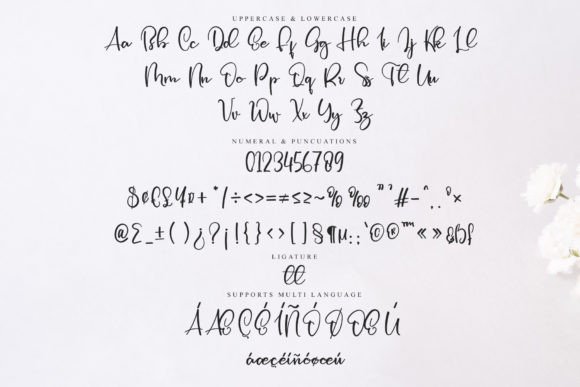 UPPERCASE & LOWERCASE
Aa Bb Cc Dd Ee Ff Gg Hh Ii Jj Kk Ll
Mm Nn Oo Pp Qq Rr Ss Tt Uu
Vv Ww Xx Yy Zz
NUMERAL & PUNCUATIONS
0123456789
$¢€£¥¤+*/÷<>=≠≤≥~%‰"'#-^.,°×
@Σ_±()¿?¡!{}‹›[]§¶µ:;`©®™«»
LIGATURE
tt
SUPPORTS MULTI LANGUAGE
ÁÆÇÉÍÑÓØŒÚ
áæçéíñóøœú